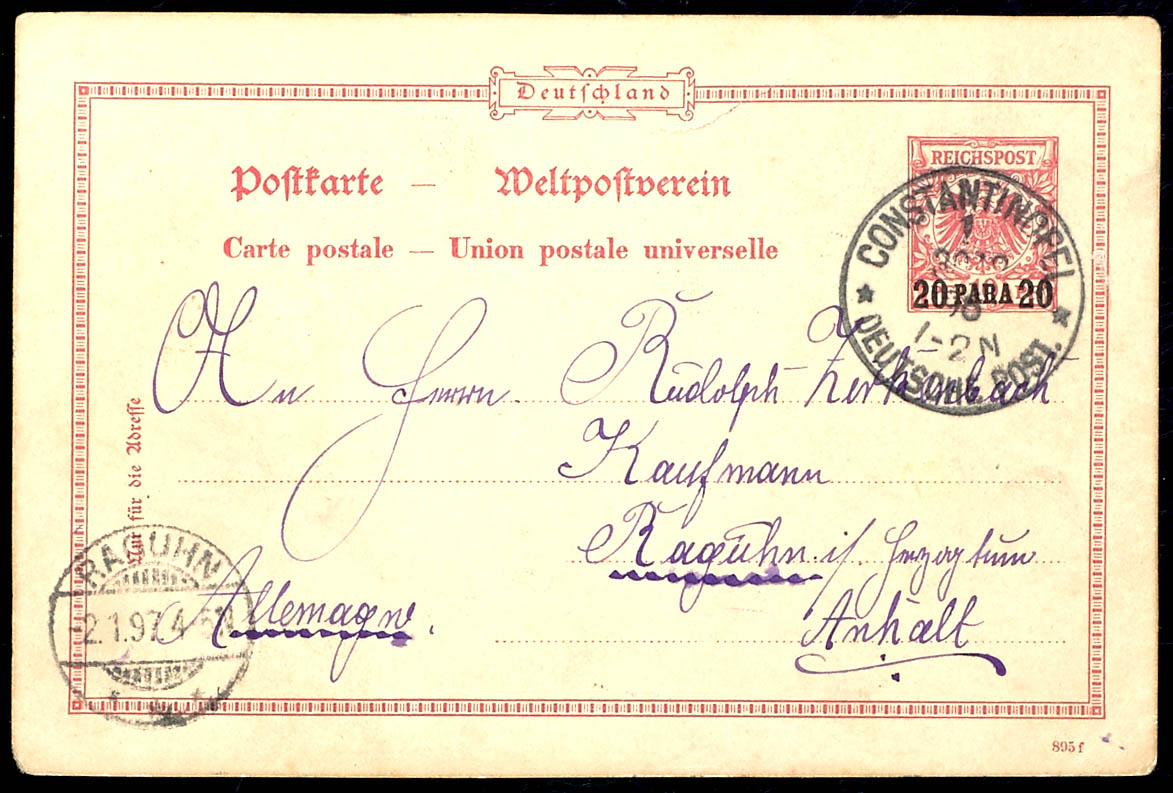 Deutschland
REICHSPOST
Postkarte — Weltpostverein
Carte postale — Union postale universelle
CONSTANTINOPEL
1
20 PARA 20
1-2N
★ DEUTSCHE POST. ★
Nur für die Adresse
An Herrn Rudolph
Kaufmann
Raguhn i/ Herzogtum
Allemagne.
Anhalt
RAGUHN
-2.1.97. 4-5N
895f